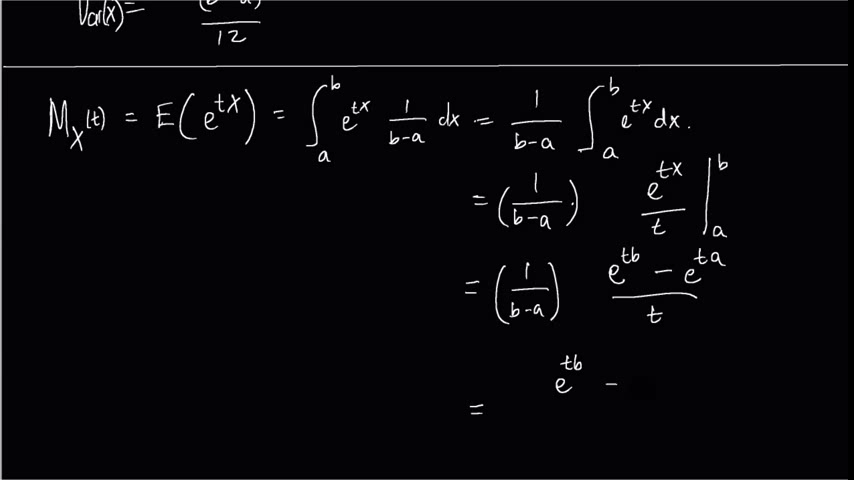 Var(X) = (b-a)² / 12
M_X(t) = E(e^{tX}) = ∫_a^b e^{tx} 1/(b-a) dx = 1/(b-a) ∫_a^b e^{tx} dx.
= (1/(b-a)) e^{tx}/t |_a^b
= (1/(b-a)) (e^{tb} - e^{ta})/t
= e^{tb} -